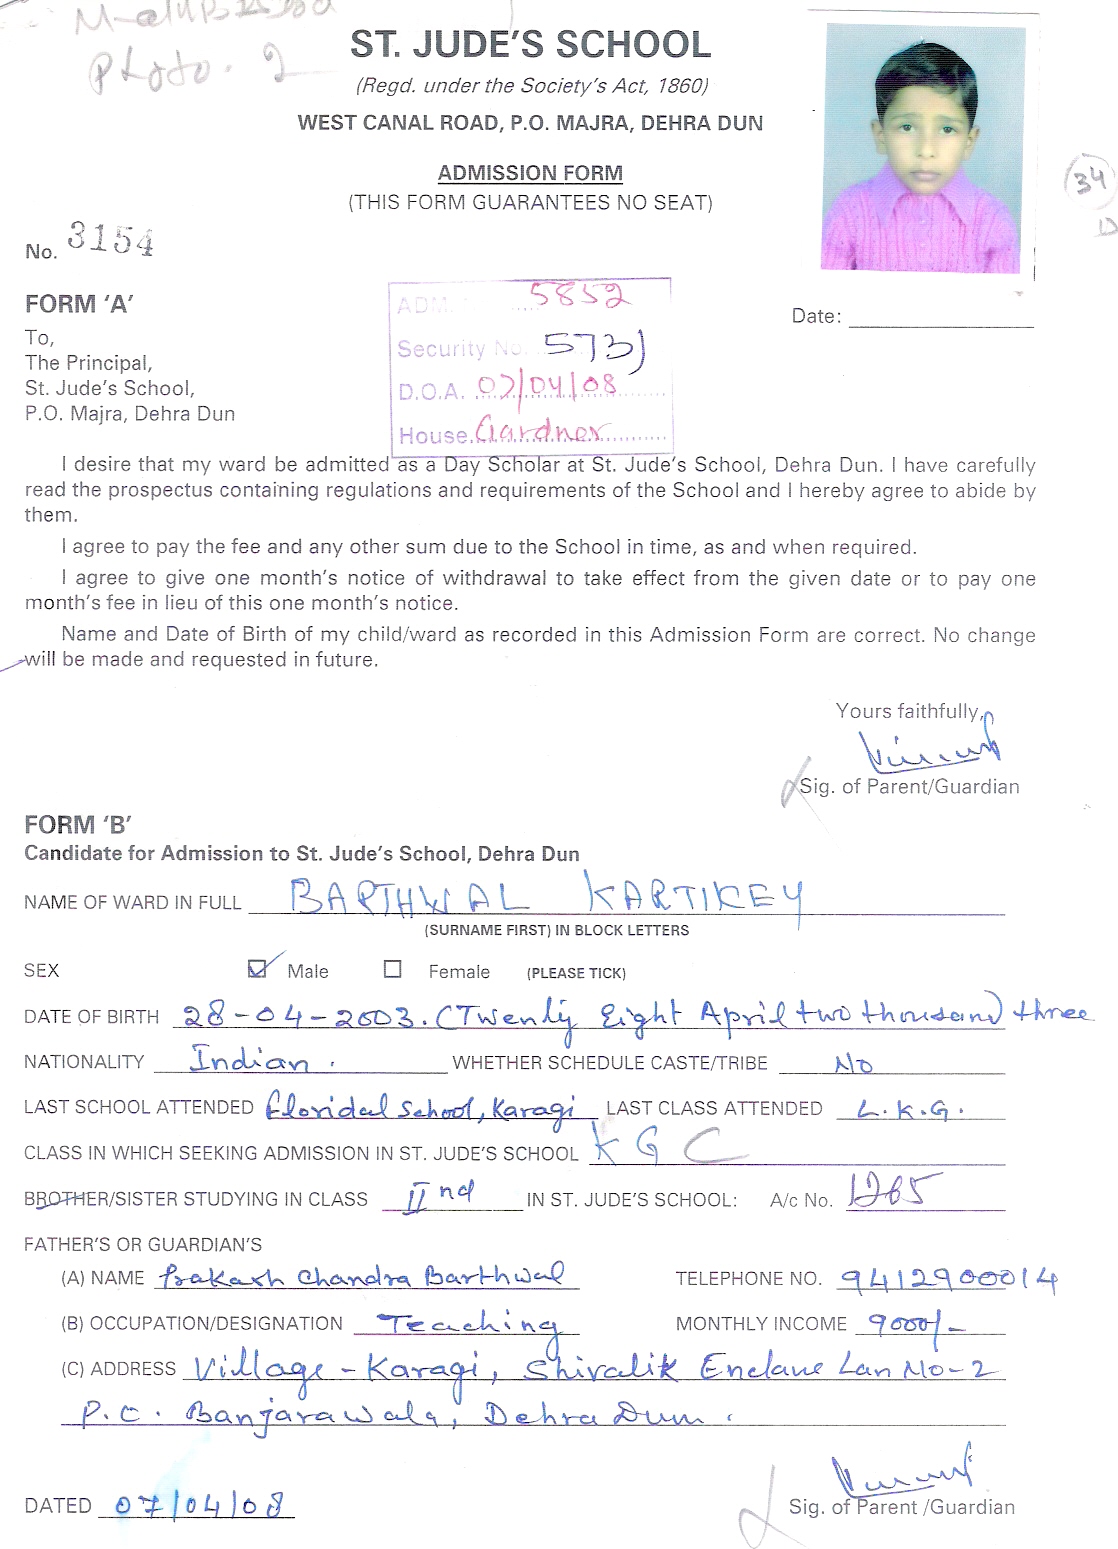 Photo. 2
ST. JUDE'S SCHOOL
(Regd. under the Society's Act, 1860)
WEST CANAL ROAD, P.O. MAJRA, DEHRA DUN
ADMISSION FORM
(THIS FORM GUARANTEES NO SEAT)
34
D
No. 3154
FORM 'A'
To,
The Principal,
St. Jude's School,
P.O. Majra, Dehra Dun
ADM. 5852
Security No. 5731
D.O.A. 07/04/08
House. Gardner
Date:
I desire that my ward be admitted as a Day Scholar at St. Jude's School, Dehra Dun. I have carefully
read the prospectus containing regulations and requirements of the School and I hereby agree to abide by
them.
I agree to pay the fee and any other sum due to the School in time, as and when required.
I agree to give one month's notice of withdrawal to take effect from the given date or to pay one
month's fee in lieu of this one month's notice.
Name and Date of Birth of my child/ward as recorded in this Admission Form are correct. No change
will be made and requested in future.
Yours faithfully,
Sig. of Parent/Guardian
FORM 'B'
Candidate for Admission to St. Jude's School, Dehra Dun
NAME OF WARD IN FULL BARTHWAL KARTIKEY
(SURNAME FIRST) IN BLOCK LETTERS
SEX Male Female (PLEASE TICK)
DATE OF BIRTH 28-04-2003. (Twenty Eight April two thousand) three
NATIONALITY Indian. WHETHER SCHEDULE CASTE/TRIBE No
LAST SCHOOL ATTENDED Floridal School, Karagi LAST CLASS ATTENDED L.K.G.
CLASS IN WHICH SEEKING ADMISSION IN ST. JUDE'S SCHOOL K G C
BROTHER/SISTER STUDYING IN CLASS II nd IN ST. JUDE'S SCHOOL: A/c No. 1265
FATHER'S OR GUARDIAN'S
(A) NAME Prakash Chandra Barthwal TELEPHONE NO. 9412900014
(B) OCCUPATION/DESIGNATION Teaching MONTHLY INCOME 9000/-
(C) ADDRESS Village - Karagi, Shivalik Enclave Lan No-2
P.O. Banjarawala, Dehra Dun.
DATED 07/04/08
Sig. of Parent /Guardian